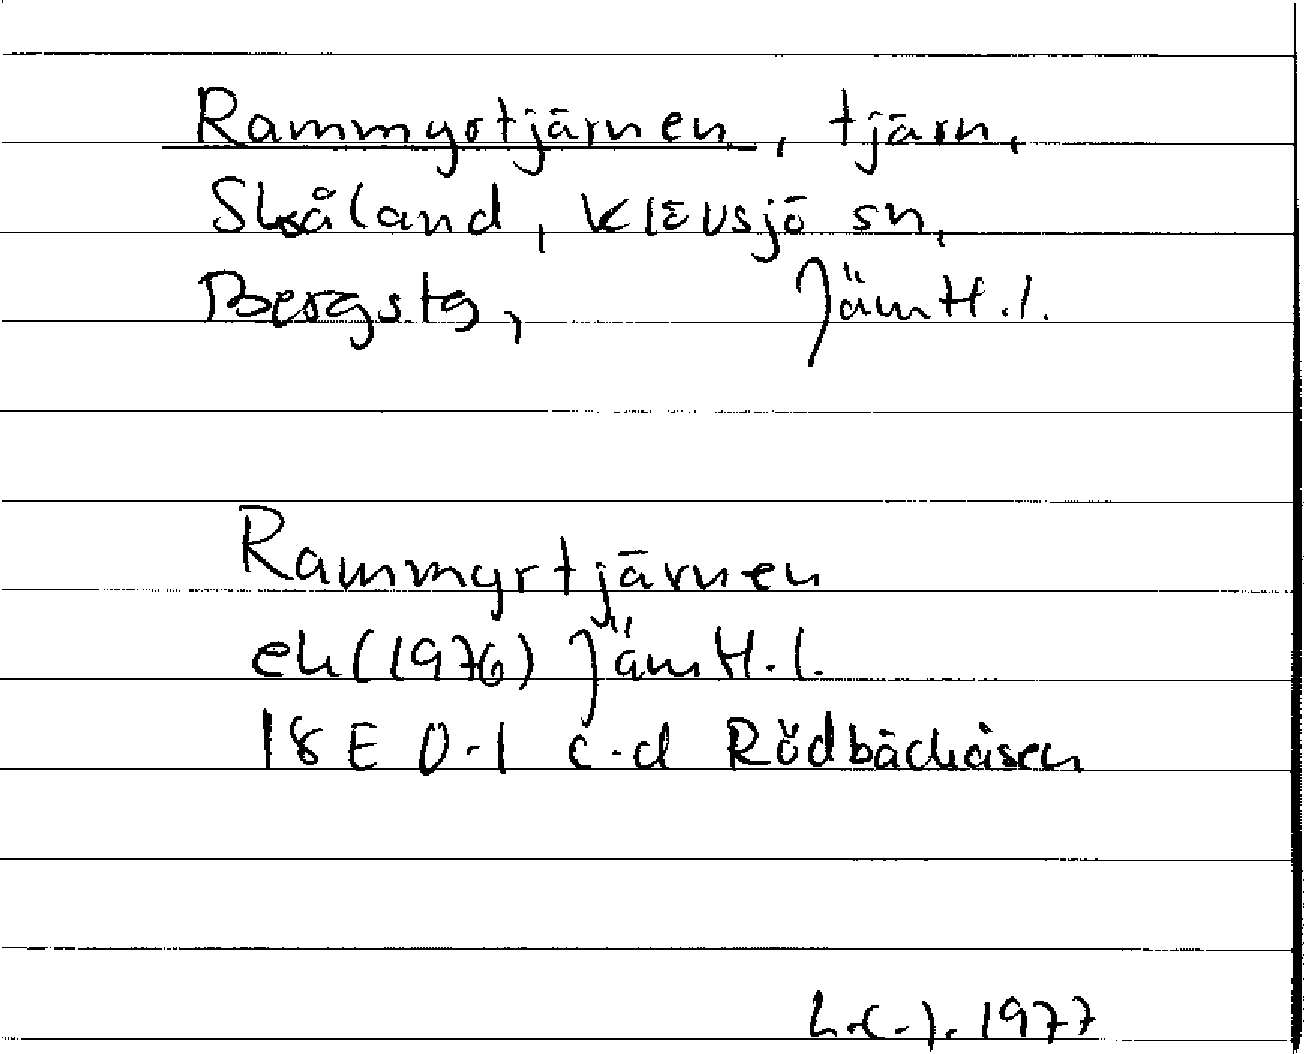 Rammyrtjärnen, tjärn,
Skåland, Klövsjö sn,
Bergs tg, Jämtl.l.
Rammyrtjärnen
ek (1976) Jämtl.l.
18E 0-1 c-d Rödbäckåsen
1977